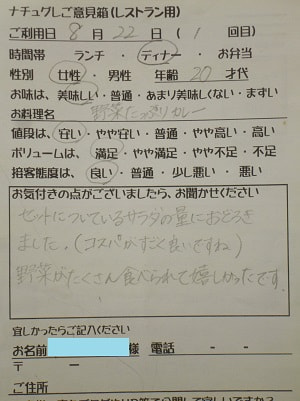 ナチュグレご意見箱(レストラン用)
ご利用日 8 月 22 日 ( 1 回目)
時間帯 ランチ ・ ディナー ・ お弁当
性別 女性 ・ 男性 年齢 20 才代
お味は、美味しい・普通・あまり美味しくない・まずい
お料理名 野菜たっぷりカレー
値段は、安い・やや安い・普通・やや高い・高い
ボリュームは、満足・やや満足・やや不足・不足
接客態度は、良い・普通・少し悪い・悪い
お気付きの点がございましたら、お聞かせください
セットについているサラダの量におどろき
ました。(コスパがすごく良いですね)
野菜がたくさん食べられて嬉しかったです。
宜しかったらご記入ください
お名前 様 電話 - -
〒 -
ご住所